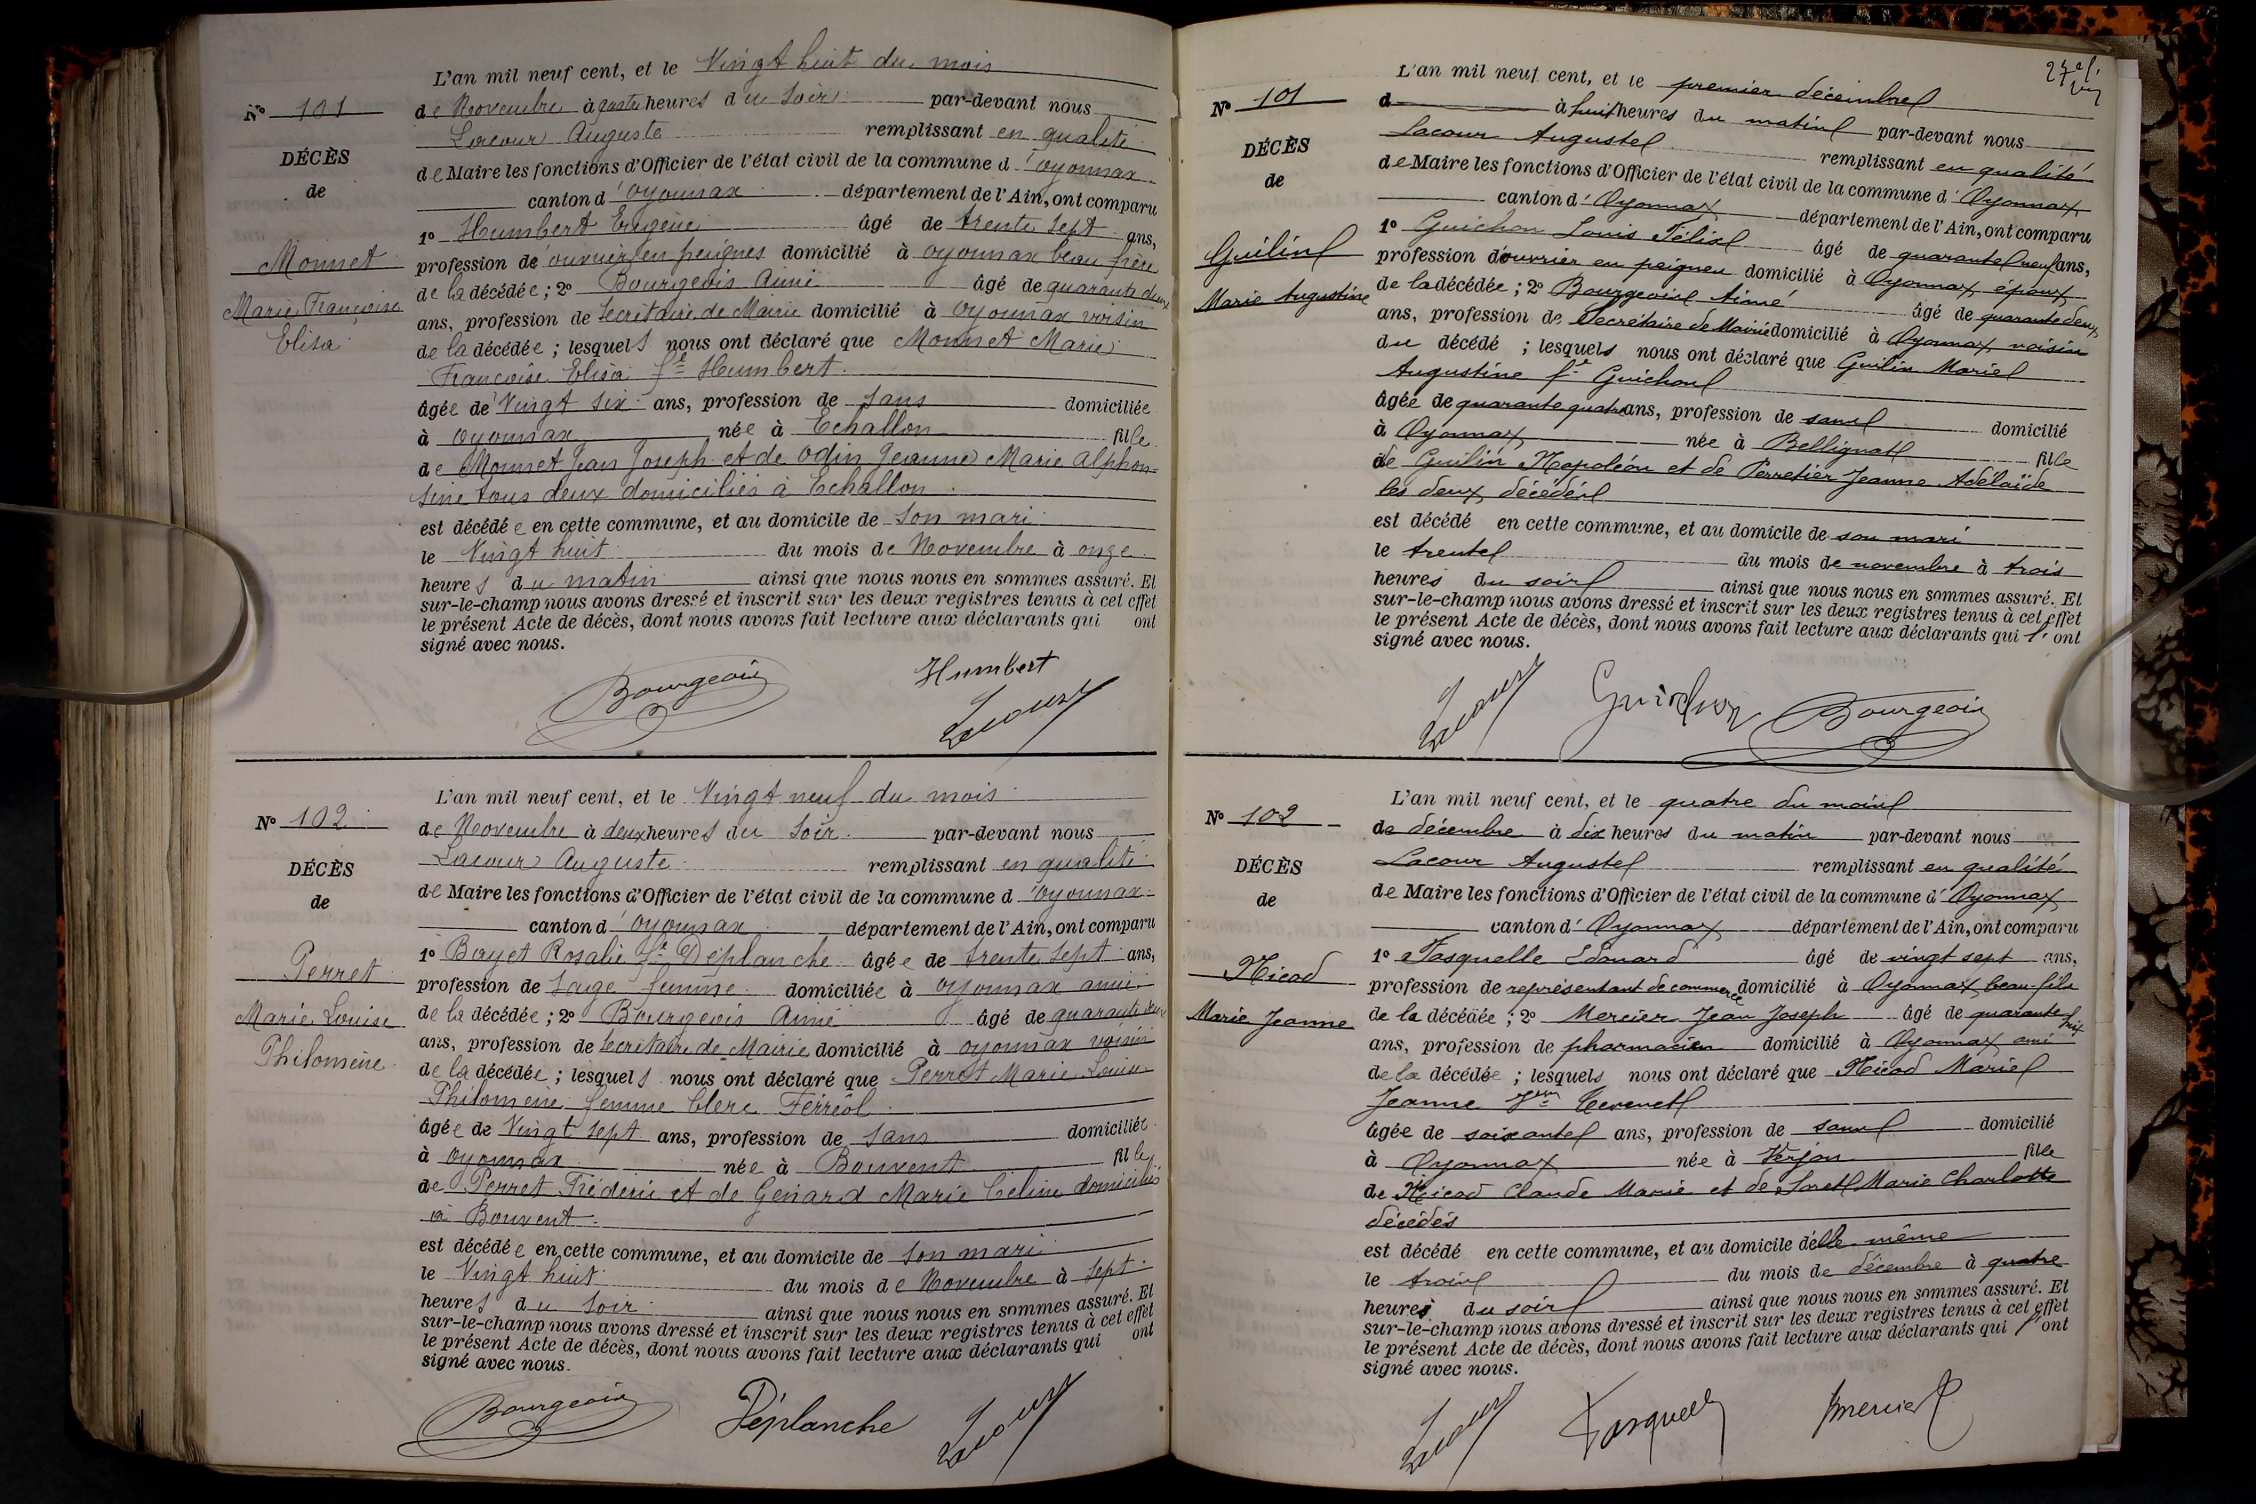 L'an mil neuf cent, et le Vingt huit du mois
N° 101
de Novembre à quatre heures du soir par-devant nous
Lacour Auguste remplissant en qualité
DÉCÈS
de Maire les fonctions d'Officier de l'état civil de la commune d'Oyonnax
de
canton d'Oyonnax département de l'Ain, ont comparu
1° Humbert Eugène âgé de trente sept ans,
Monnet
profession de ouvrier en peignes domicilié à Oyonnax beau frère
de la décédée ; 2° Bourgeois Aimé âgé de quarante deux
Marie Françoise
ans, profession de Secrétaire de Mairie domicilié à Oyonnax voisin
Elisa
de la décédée ; lesquels nous ont déclaré que Monnet Marie
Françoise Elisa fe Humbert
âgée de Vingt six ans, profession de sans domiciliée
à Oyonnax née à Echallon fille
de Monnet Jean Joseph et de Odin Jeanne Marie Alphon-
sine tous deux domiciliés à Echallon
est décédée en cette commune, et au domicile de son mari
le Vingt huit du mois de Novembre à onze
heures du matin ainsi que nous nous en sommes assuré. Et
sur-le-champ nous avons dressé et inscrit sur les deux registres tenus à cet effet
le présent Acte de décès, dont nous avons fait lecture aux déclarants qui ont
signé avec nous.
Bourgeois Humbert
Lacour
L'an mil neuf cent, et le Vingt neuf du mois
N° 102
de Novembre à deux heures du soir par-devant nous
Lacour Auguste remplissant en qualité
DÉCÈS
de Maire les fonctions d'Officier de l'état civil de la commune d'Oyonnax
de
canton d'Oyonnax département de l'Ain, ont comparu
1° Bayet Rosalie fe Déplanche âgée de trente sept ans,
Perret
profession de Sage femme domiciliée à Oyonnax amie
de la décédée ; 2° Bourgeois Aimé âgé de quarante deux
Marie Louise
ans, profession de Secrétaire de Mairie domicilié à Oyonnax voisin
Philomène
de la décédée ; lesquels nous ont déclaré que Perret Marie Louise
Philomène femme Clerc Ferréol
âgée de Vingt sept ans, profession de sans domiciliée
à Oyonnax née à Bouvent fille
de Perret Fréderic et de Genard Marie Céline domiciliés
à Bouvent
est décédée en cette commune, et au domicile de son mari
le Vingt huit du mois de Novembre à sept
heures du soir ainsi que nous nous en sommes assuré. Et
sur-le-champ nous avons dressé et inscrit sur les deux registres tenus à cet effet
le présent Acte de décès, dont nous avons fait lecture aux déclarants qui ont
signé avec nous.
Bourgeois Déplanche Lacour
L'an mil neuf cent, et le premier décembre
N° 101
d à huit heures du matin par-devant nous
Lacour Auguste remplissant en qualité
DÉCÈS
de Maire les fonctions d'Officier de l'état civil de la commune d'Oyonnax
de
canton d'Oyonnax département de l'Ain, ont comparu
1° Guichon Louis Félix âgé de quarante neuf ans,
Guilin
profession d'ouvrier en peignes domicilié à Oyonnax époux
de la décédée ; 2° Bourgeois Aimé âgé de quarante deux
Marie Augustine
ans, profession de Secrétaire de Mairie domicilié à Oyonnax voisin
du décédé ; lesquels nous ont déclaré que Guilin Marie
Augustine fe Guichon
âgée de quarante quatre ans, profession de sans domicilié
à Oyonnax née à Bellignat fille
de Guilin Napoléon et de Perretier Jeanne Adélaïde
les deux décédés
est décédé en cette commune, et au domicile de son mari
le trente du mois de novembre à trois
heures du soir ainsi que nous nous en sommes assuré. Et
sur-le-champ nous avons dressé et inscrit sur les deux registres tenus à cet effet
le présent Acte de décès, dont nous avons fait lecture aux déclarants qui l'ont
signé avec nous.
Lacour Guichon Bourgeois
L'an mil neuf cent, et le quatre du mois
N° 102
de décembre à dix heures du matin par-devant nous
Lacour Auguste remplissant en qualité
DÉCÈS
de Maire les fonctions d'Officier de l'état civil de la commune d'Oyonnax
de
canton d'Oyonnax département de l'Ain, ont comparu
1° Fasquelle Edouard âgé de vingt sept ans,
Nicod
profession de représentant de commerce domicilié à Oyonnax, beau-fils
Marie Jeanne
de la décédée ; 2° Mercier Jean Joseph âgé de quarante six
ans, profession de pharmacien domicilié à Oyonnax ami
de la décédée ; lesquels nous ont déclaré que Nicod Marie
Jeanne
âgée de soixante ans, profession de sans domicilié
à Oyonnax née à Verjon fille
de Nicod Claude Marie et de Soret Marie Charlotte
décédés
est décédé en cette commune, et au domicile d'elle même
le trois du mois de décembre à quatre
heures du soir ainsi que nous nous en sommes assuré. Et
sur-le-champ nous avons dressé et inscrit sur les deux registres tenus à cet effet
le présent Acte de décès, dont nous avons fait lecture aux déclarants qui l'ont
signé avec nous.
Lacour Fasquelle Jmercier